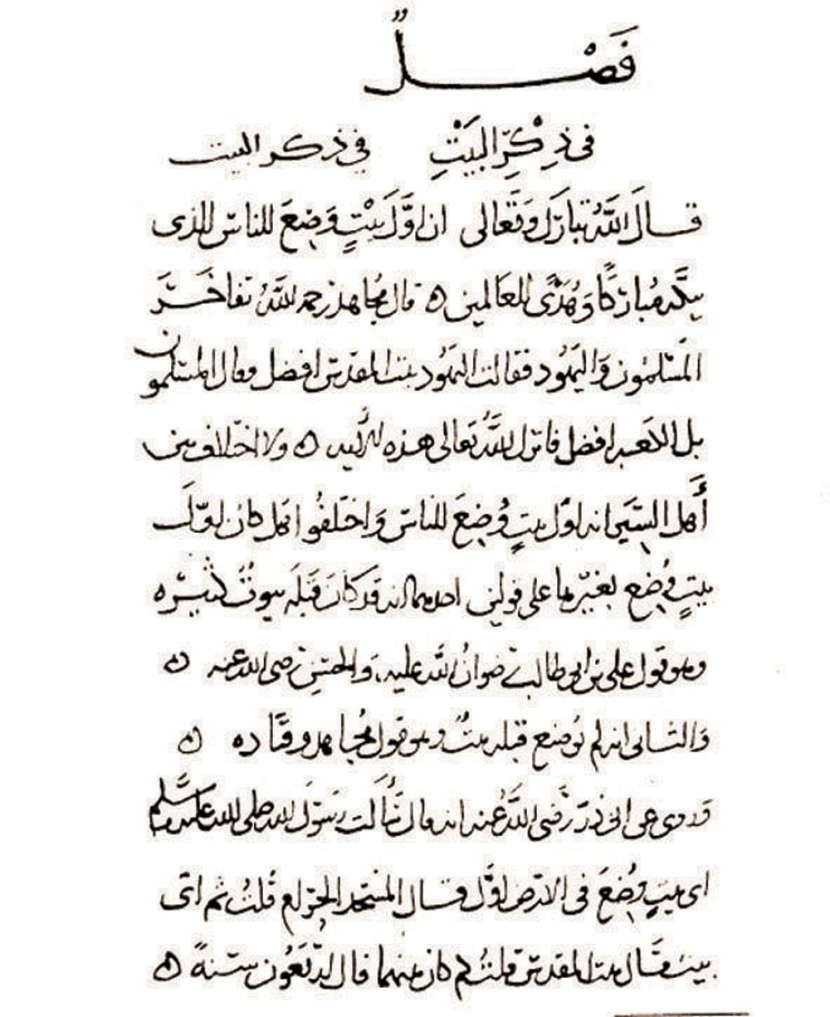 فَصْلٌ
فى ذِكْرِ البَيْتِ فى ذكر البيت
قالَ اللَّهُ تبارَكَ وَتَعَالى ان اوَّلَ بَيْتٍ وُضِعَ للناسِ للذى
ببَكَّة مُبارَكًا وَهُدًى للعَالمين ه قال مُجاهد رحمه اللَّهُ تفاخَرَ
المُسْلمُون وَاليَهُود فقالت اليَهُود بيت المقدس افضل وقال المسلمون
بل الكعبه افضل فانزل اللَّهُ تعالى هذه الآيه ه ولا اختلاف بين
أَهل السِّيَر انه اوّل بيتٍ وُضِعَ للناسِ وَاختلفُوا هَل كان اوّلَ
بيتٍ وُضِع بغَيْرها على قولين احدهما انه قد كَانَ قَبْلَهُ بيوتٌ كثيْره
وهو قول على بن ابى طالب رضوانُ اللَّه عليه، وَالحَسَن رضى الله عنه ه
وَالثانى انه لم تُوضع قبله بيتٌ وهو قول مُجاهد وقتَاده ه
وروى عن ابى ذرّ رَضى اللَّهُ عنه انه قال سَأَلت رَسُولَ الله صلى الله عليه وسلم
اى بيتٍ وُضِعَ فى الارض اوَّل قال المَسْجد الحَرَام قُلتُ ثم اى
بيت قَال بيت المقدس قلتُ كم كان بينهما قال ارْبَعُون سَنةً ه